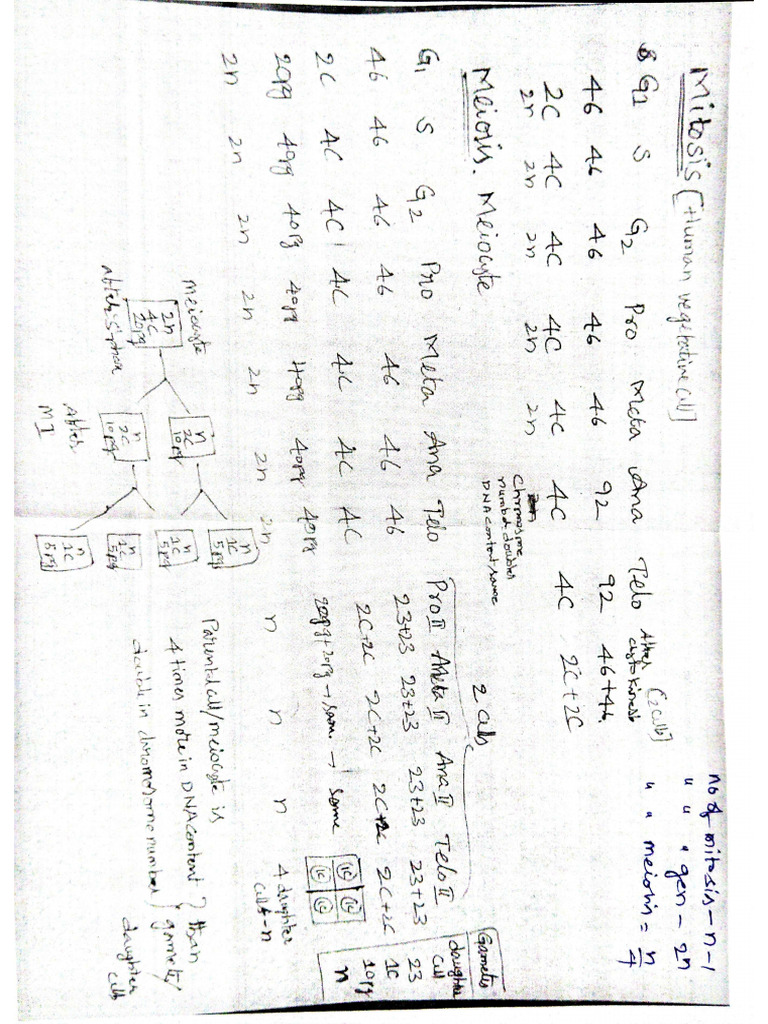 Mitosis [Human vegetative cell]
no of mitosis - n-1
" " gen - 2n
" " meiosis = n/4
G1 S G2 Pro Meta Ana Telo After cytokinesis [2 cells]
46 46 46 46 46 92 92 46+46
2C 4C 4C 4C 4C 4C 4C 2C+2C
2n 2n 2n 2n 2n
Chromosome
number doubles
DNA content same
Meiosis. Meiocyte
2 cells
G1 S G2 Pro Meta Ana Telo Pro II Meta II Ana II Telo II
46 46 46 46 46 46 46 23+23 23+23 23+23 23+23
2C 4C 4C 4C 4C 4C 4C 2C+2C 2C+2C 2C+2C 2C+2C
20pg 40pg 40pg 40pg 40pg 40pg 40pg 20pg+20pg → same → same
2n 2n 2n 2n 2n 2n 2n n n n 4 daughter
cells - n
1C 1C
1C 1C
Gametes
daughter
cell
23
1C
10pg
n
meiocyte
2n
4C
20pg
after S phase
n
2C
10pg
n
2C
10pg
After
M I
n
1C
5pg
n
1C
5pg
n
1C
5pg
n
1C
5pg
Parental cell/meiocyte is
4 times more in DNA content } than
double in chromosome number } gamete/
daughter
cells